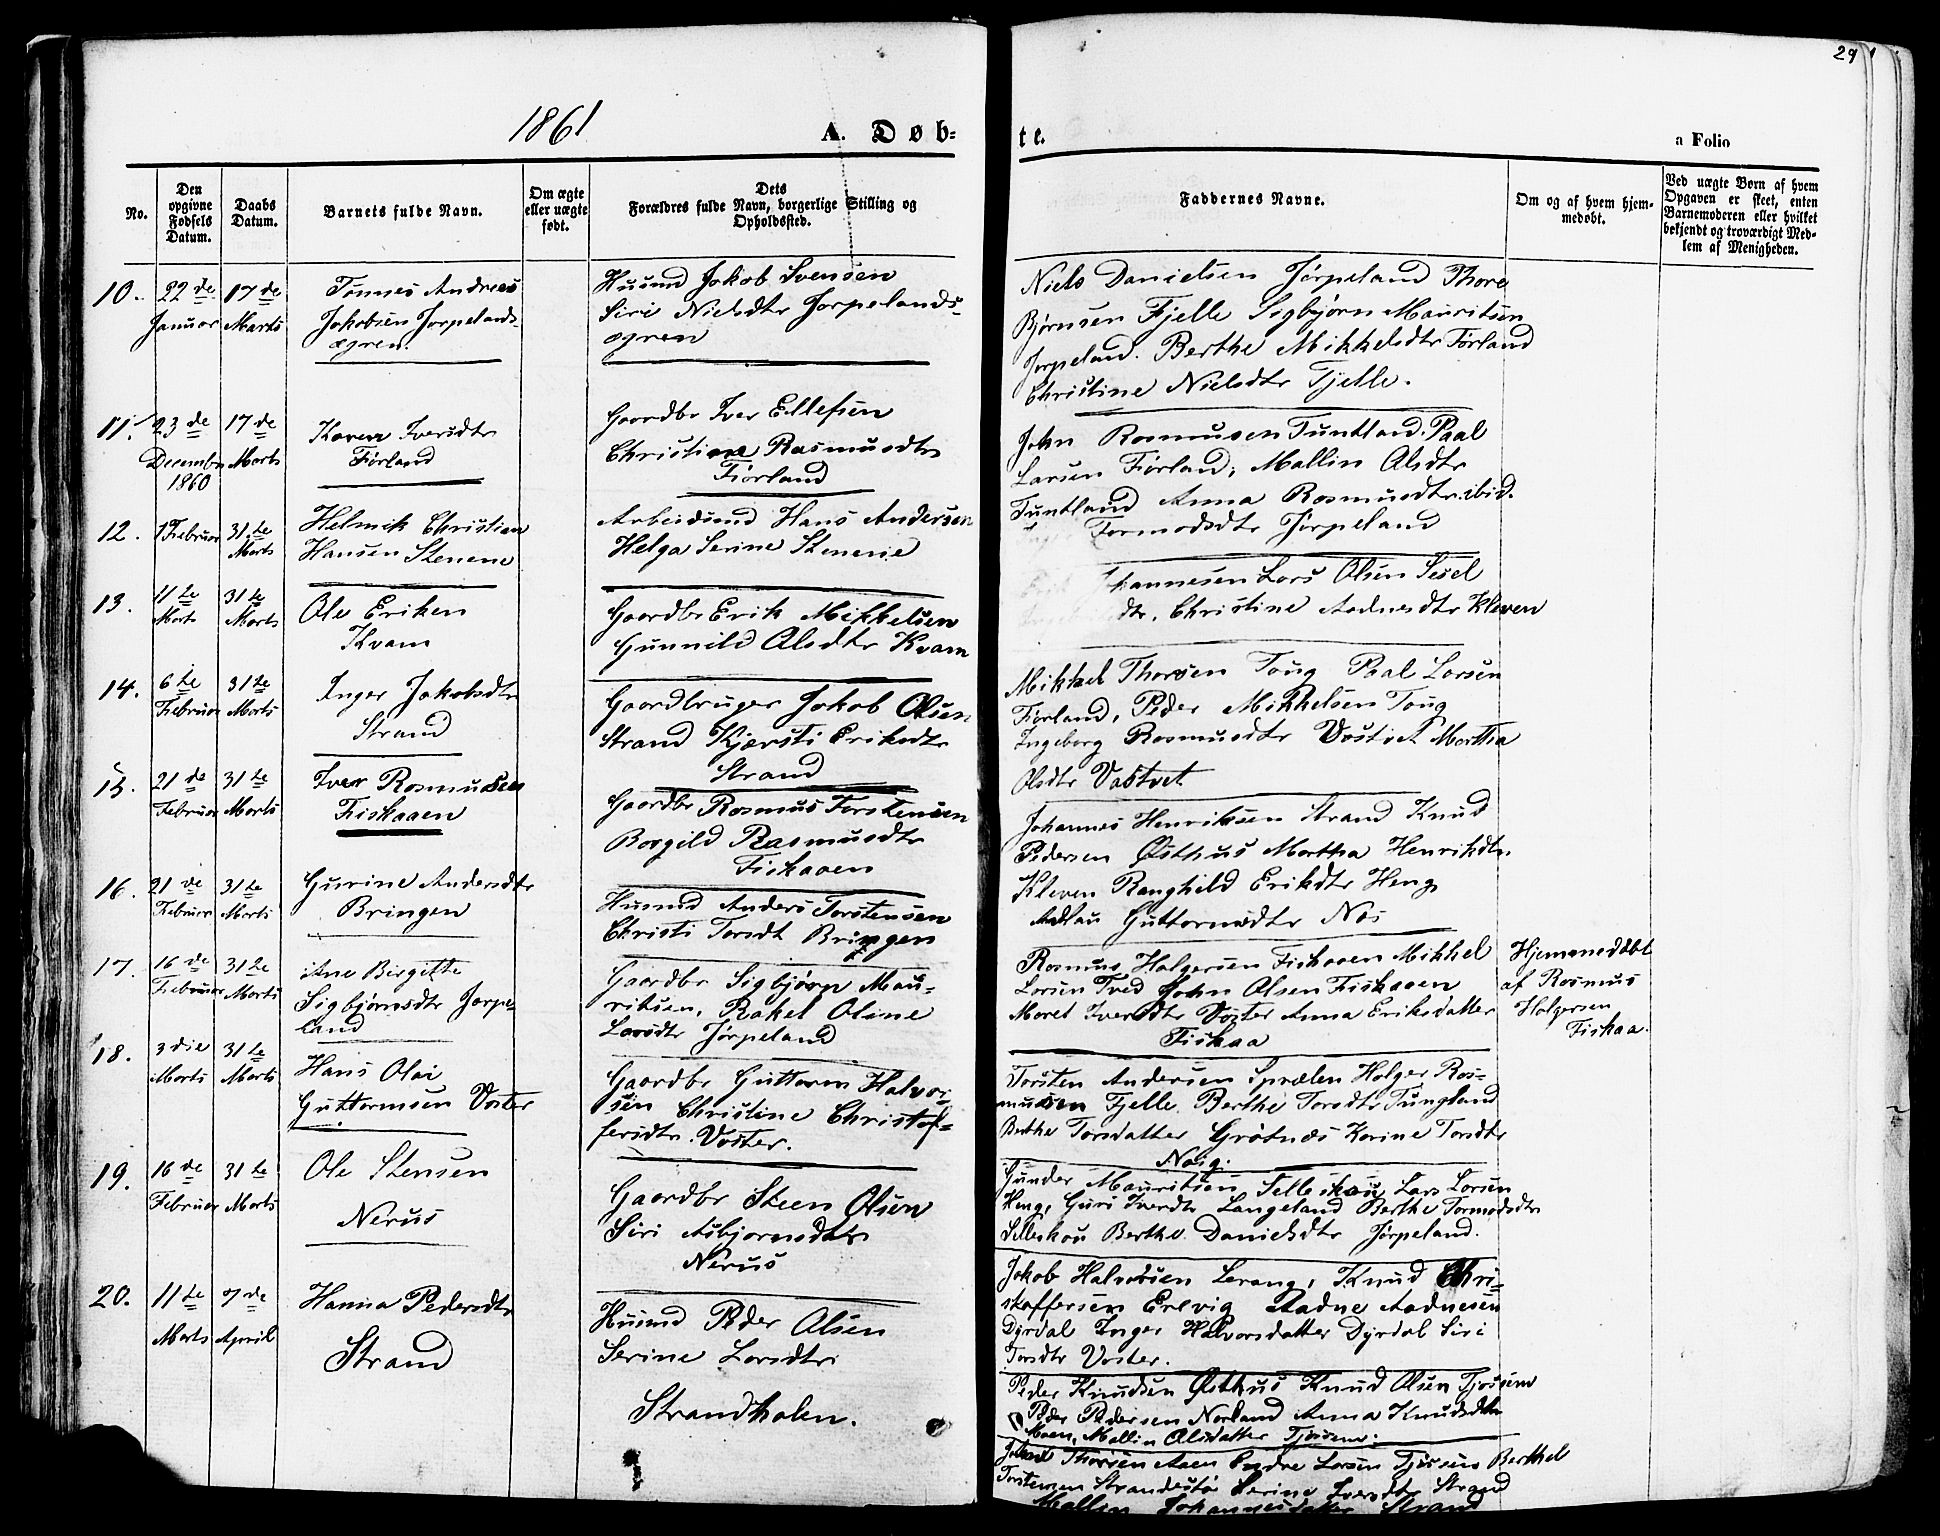 29
1861
A. Døb-
te.
a Folio
No.
Den opgivne Fødsels Datum.
Daabs Datum.
Barnets fulde Navn.
Om ægte eller uægte født.
Dets Forældres fulde Navn, borgerlige Stilling og Opholdssted.
Faddernes Navne.
Om og af hvem hjemmedøbt.
Ved uægte Børn af hvem Opgaven er skeet, enten Barnemoderen eller hvilket bekjendt og troværdigt Medlem af Menigheden.
10.
22de Januar
17de Marts
Tønnes Andreas
Jakobsen Jørpelands-
ægren.
Husmd Jakob Svensen
Siri Nielsdtr Jørpelands-
ægren
Niels Danielsen Jørpeland Thore
Bjørnsen Fjelle Sigbjørn Mauritsen
Jørpeland. Berthe Mikkelsdtr Førland
Christine Nielsdtr Fjelle.
11.
23de Decembr 1860
17de Marts
Karen Iversdtr
Førland
Gaardbr Iver Ellefsen
Christine Rasmusdtr
Førland
John Rasmusen Tuntland. Paal
Larsen Førland, Mallin Olsdtr
Tuntland Anna Rasmusdtr ibid.
Tormodsdtr Jørpeland
12.
1 Februar
31te Marts
Helmik Christian
Hansen Stenene
Arbeidsmd Hans Andersen
Helga Serine Stenene
Johannesen Lars Olsen Sesel
dtr. Christine Aadnesdtr Kleven
13.
11te Marts
31te Marts
Ole Eriksen
Kvam
Gaardbr Erik Mikkelsen
Gunnild Olsdtr Kvam
Mikkel Thorsen Toug Paal Larsen
Førland, Peder Mikkelsen Toug
Ingeborg Rasmusdtr Vastvet Martha
Olsdtr Vastvet
14.
6te Februar
31te Marts
Inger Jakobsdtr
Strand
Gaardbruger Jakob Olsen
Strand Kjærsti Eriksdtr
Strand
Johannes Henriksen Strand Knud
Pedersen Østhus Martha Henriksdtr.
Kleven Ranghild Eriksdtr Heng
Aadlau Guttormsdtr Nos
15.
21de Februar
31te Marts
Iver Rasmusen
Fiskaaen
Gaardbr Rasmus Torstensen
Borgild Rasmusdtr
Fiskaaen
Rasmus Holgersen Fiskaaen Mikkel
Larsen Tved John Olsen Fiskaaen
Maret Iversdtr Voster Anna Eriksdatter
Fiskaa
Hjemmedøbt
af Rasmus
Holgersen
Fiskaa.
16.
21de Februar
31te Marts
Gurine Andersdtr
Bringen
Husmd Anders Torstensen
Christi Torsdt Bringen
Torsten Andersen Sprælen Holger Ras-
musen Fjelle. Berthe Torsdtr Tungland
Berthe Torsdatter Grøtnes Karine Torsdtr
Nosg.
17.
16de Februar
31te Marts
Ane Birgitte
Sigbjørnsdtr Jørpe-
land
Gaardbr Sigbjørn Mau-
ritsen, Rakel Oline
Larsdtr Jørpeland
Gunder Mauritsen Selleskou Lars Larsen
Heng, Guri Iversdtr Langeland Berthe Tormodsdtr
Selleskou Berthe Danielsdtr Jørpeland.
18.
3die Marts
31te Marts
Hans Olai
Guttormsen Voster
Gaardbr Guttorm Halvor-
sen Christine Christof-
fersdtr. Voster.
Jakob Halvorsen Lerang, Knud Chri-
stoffersen Erevig Aadne Aadnesen
Dyrdal Inger Halvorsdatter Dyrdal Siri
Torsdtr Voster.
19.
16de Februar
31te Marts
Ole Stensen
Nerus
Gaardbr Steen Olsen
Siri Asbjørnsdtr
Nerus
Peder Knudsen Østhus Knud Olsen Tjøssem
Peder Pedersen Norland Anna Knudsdtr
Moen, Mallin Olsdatter Tjøssem.
20.
11te Marts
7de April
Hanna Pedersdtr
Strand
Husmd Peder Olsen
Serine Larsdtr
Strandholen.
Thorsen Aaen Endre Larsen Tjøssem Berthel
Torstensen Strandestø Serine Iversdtr Strand
Mallen Johannesdatter Strand